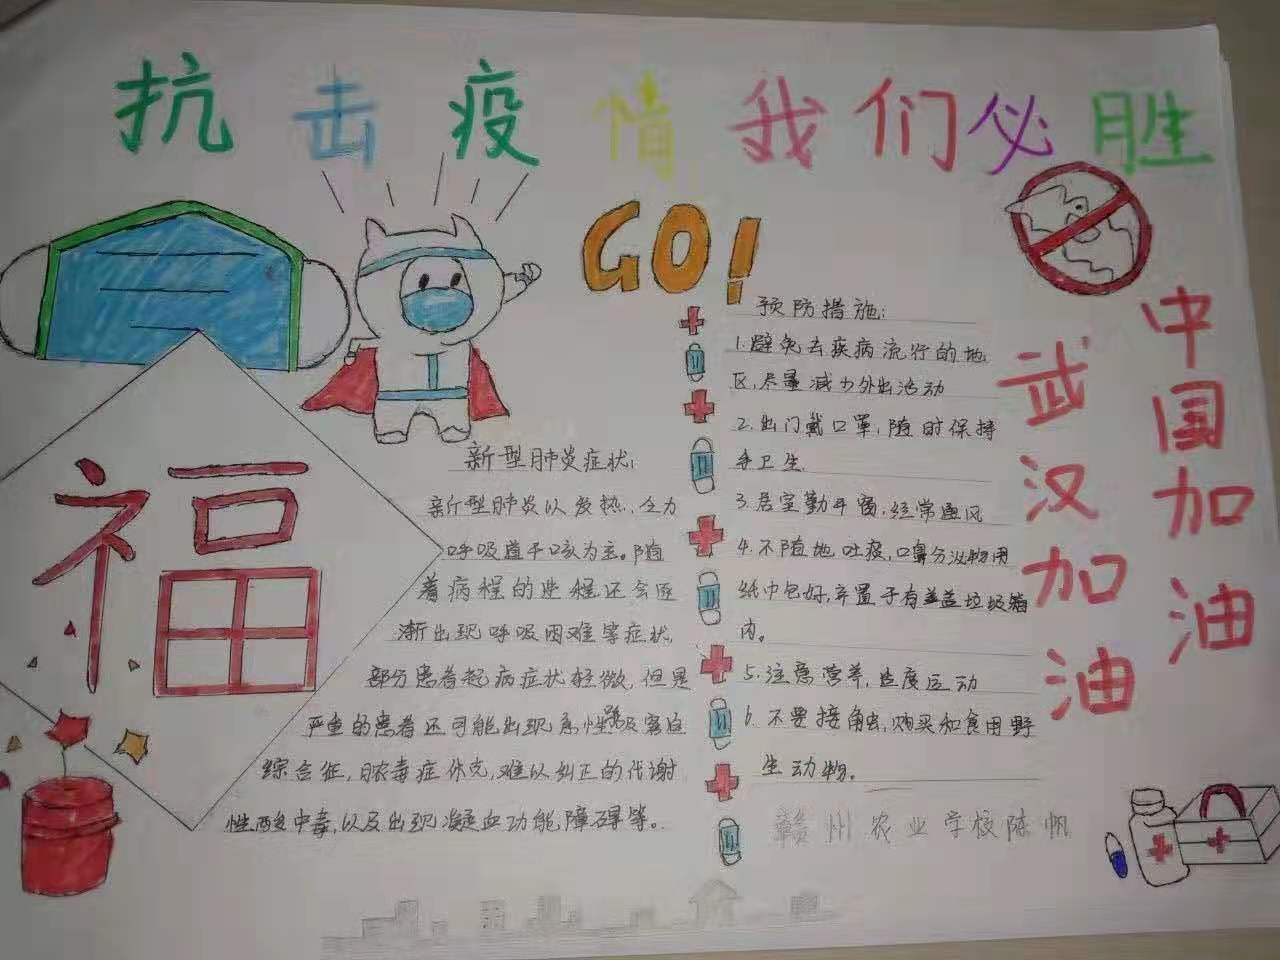 抗击疫情我们必胜
GO!
福
新型肺炎症状:
新型肺炎以发热、乏力
呼吸道干咳为主。随
着病程的进程还会逐
渐出现呼吸困难等症状
部分患者起病症状轻微,但是
严重的患者还可能出现急性呼吸窘迫
综合征,脓毒症休克,难以纠正的代谢
性酸中毒,以及出现凝血功能障碍等。
预防措施:
1.避免去疾病流行的地
区,尽量减少外出活动
2.出门戴口罩,随时保持
手卫生.
3.居室勤开窗,经常通风
4.不随地吐痰,口鼻分泌物用
纸巾包好,弃置于有盖垃圾箱
内。
5.注意营养,适度运动
6.不要接触,购买和食用野
生动物。
赣州农业学校陈帆
武汉加油
中国加油